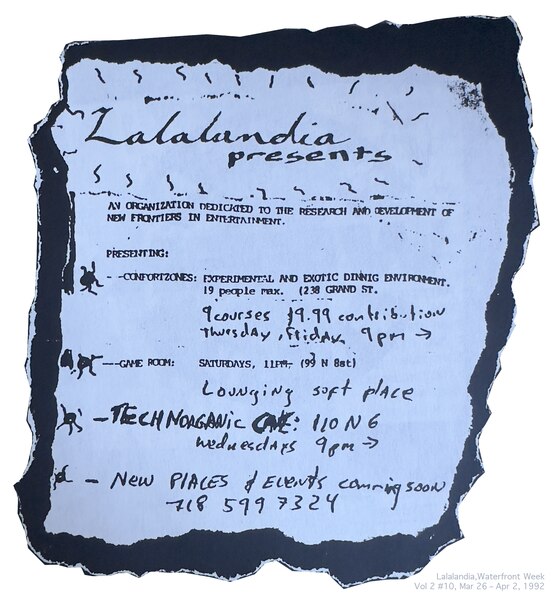 Lalalandia
presents
AN ORGANIZATION DEDICATED TO THE RESEARCH AND DEVELOPMENT OF
NEW FRONTIERS IN ENTERTAINMENT.
PRESENTING:
--CONFORTZONES: EXPERIMENTAL AND EXOTIC DINNIG ENVIRONMENT.
19 people max. (238 GRAND ST.
9 courses 19.99 contribution
Thursday, Friday, 9pm →
---GAME ROOM: SATURDAYS, 11PM- (99 N 8st)
Lounging soft place
- TECHNORGANIC CAVE: 110 N 6
wednesdays 9pm →
- New PlACES & EVENTS coming soon
718 599 7324
Lalalandia,Waterfront Week
Vol 2 #10, Mar 26 - Apr 2, 1992